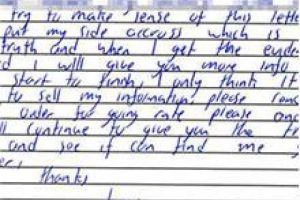 try to make sense of this lette
put my side accross which is
truth and when I get the evide
d I will give you more info
start to finish, I only think it
to sell my information, please
order for going rate please onc
ll continue to give you the
and see if can find me
thanks